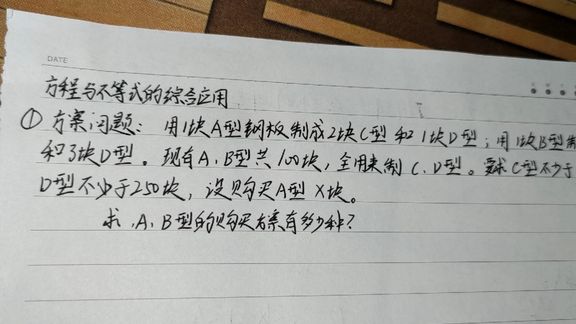 DATE
方程与不等式的综合应用
① 方案问题: 用1块A型钢板制成2块C型和1块D型;用1块B型制
和3块D型。现有A、B型共100块,全用来制C、D型。要求C型不少于
D型不少于250块,设购买A型X块。
求A、B型的购买方案有多少种?